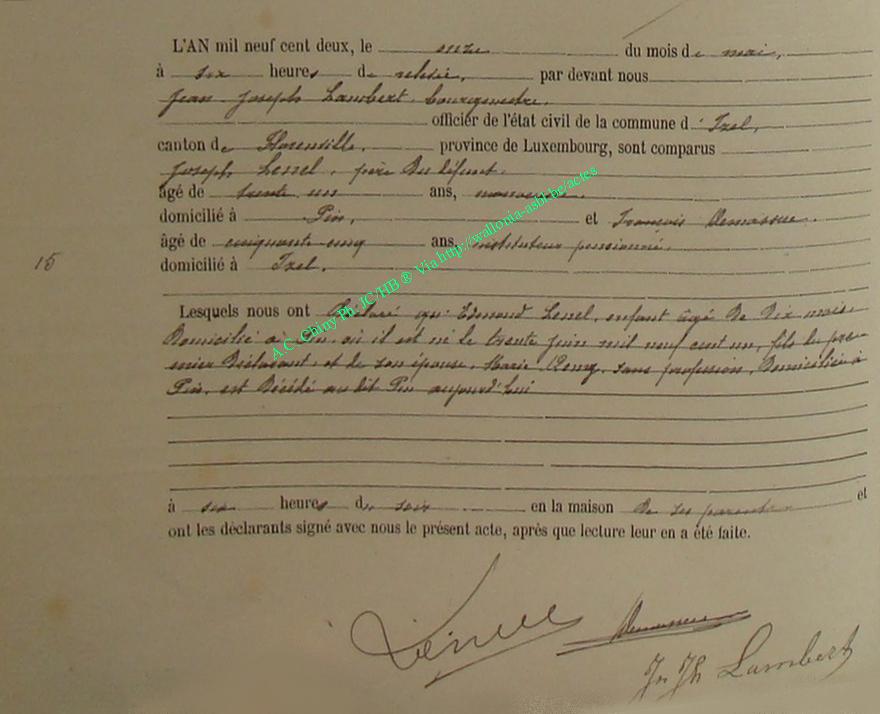 L'AN mil neuf cent deux, le onze du mois de mai,
à six heures de relevée, par devant nous
Jean Joseph Lambert, bourgmestre,
officier de l'état civil de la commune d'Izel,
canton de Florenville, province de Luxembourg, sont comparus
Joseph Lenel, père du défunt,
âgé de trente un ans,
domicilié à Pin, et François
âgé de cinquante cinq ans, instituteur pensionné,
15
domicilié à Izel.
Lesquels nous ont déclaré que Edmond Lenel, enfant âgé de dix mois,
domicilié à Pin, où il est né le trente juin mil neuf cent un, fils du pre-
mier déclarant, et de son épouse, Marie Remy, sans profession, domiciliée à
Pin, est décédé au dit Pin aujourd'hui
à six heures du soir en la maison de ses parents et
ont les déclarants signé avec nous le présent acte, après que lecture leur en a été faite.
Jn Jh Lambert
A.C. Chiny Ph. JC/HB ® Via http://wallonia-asbl.be/actes